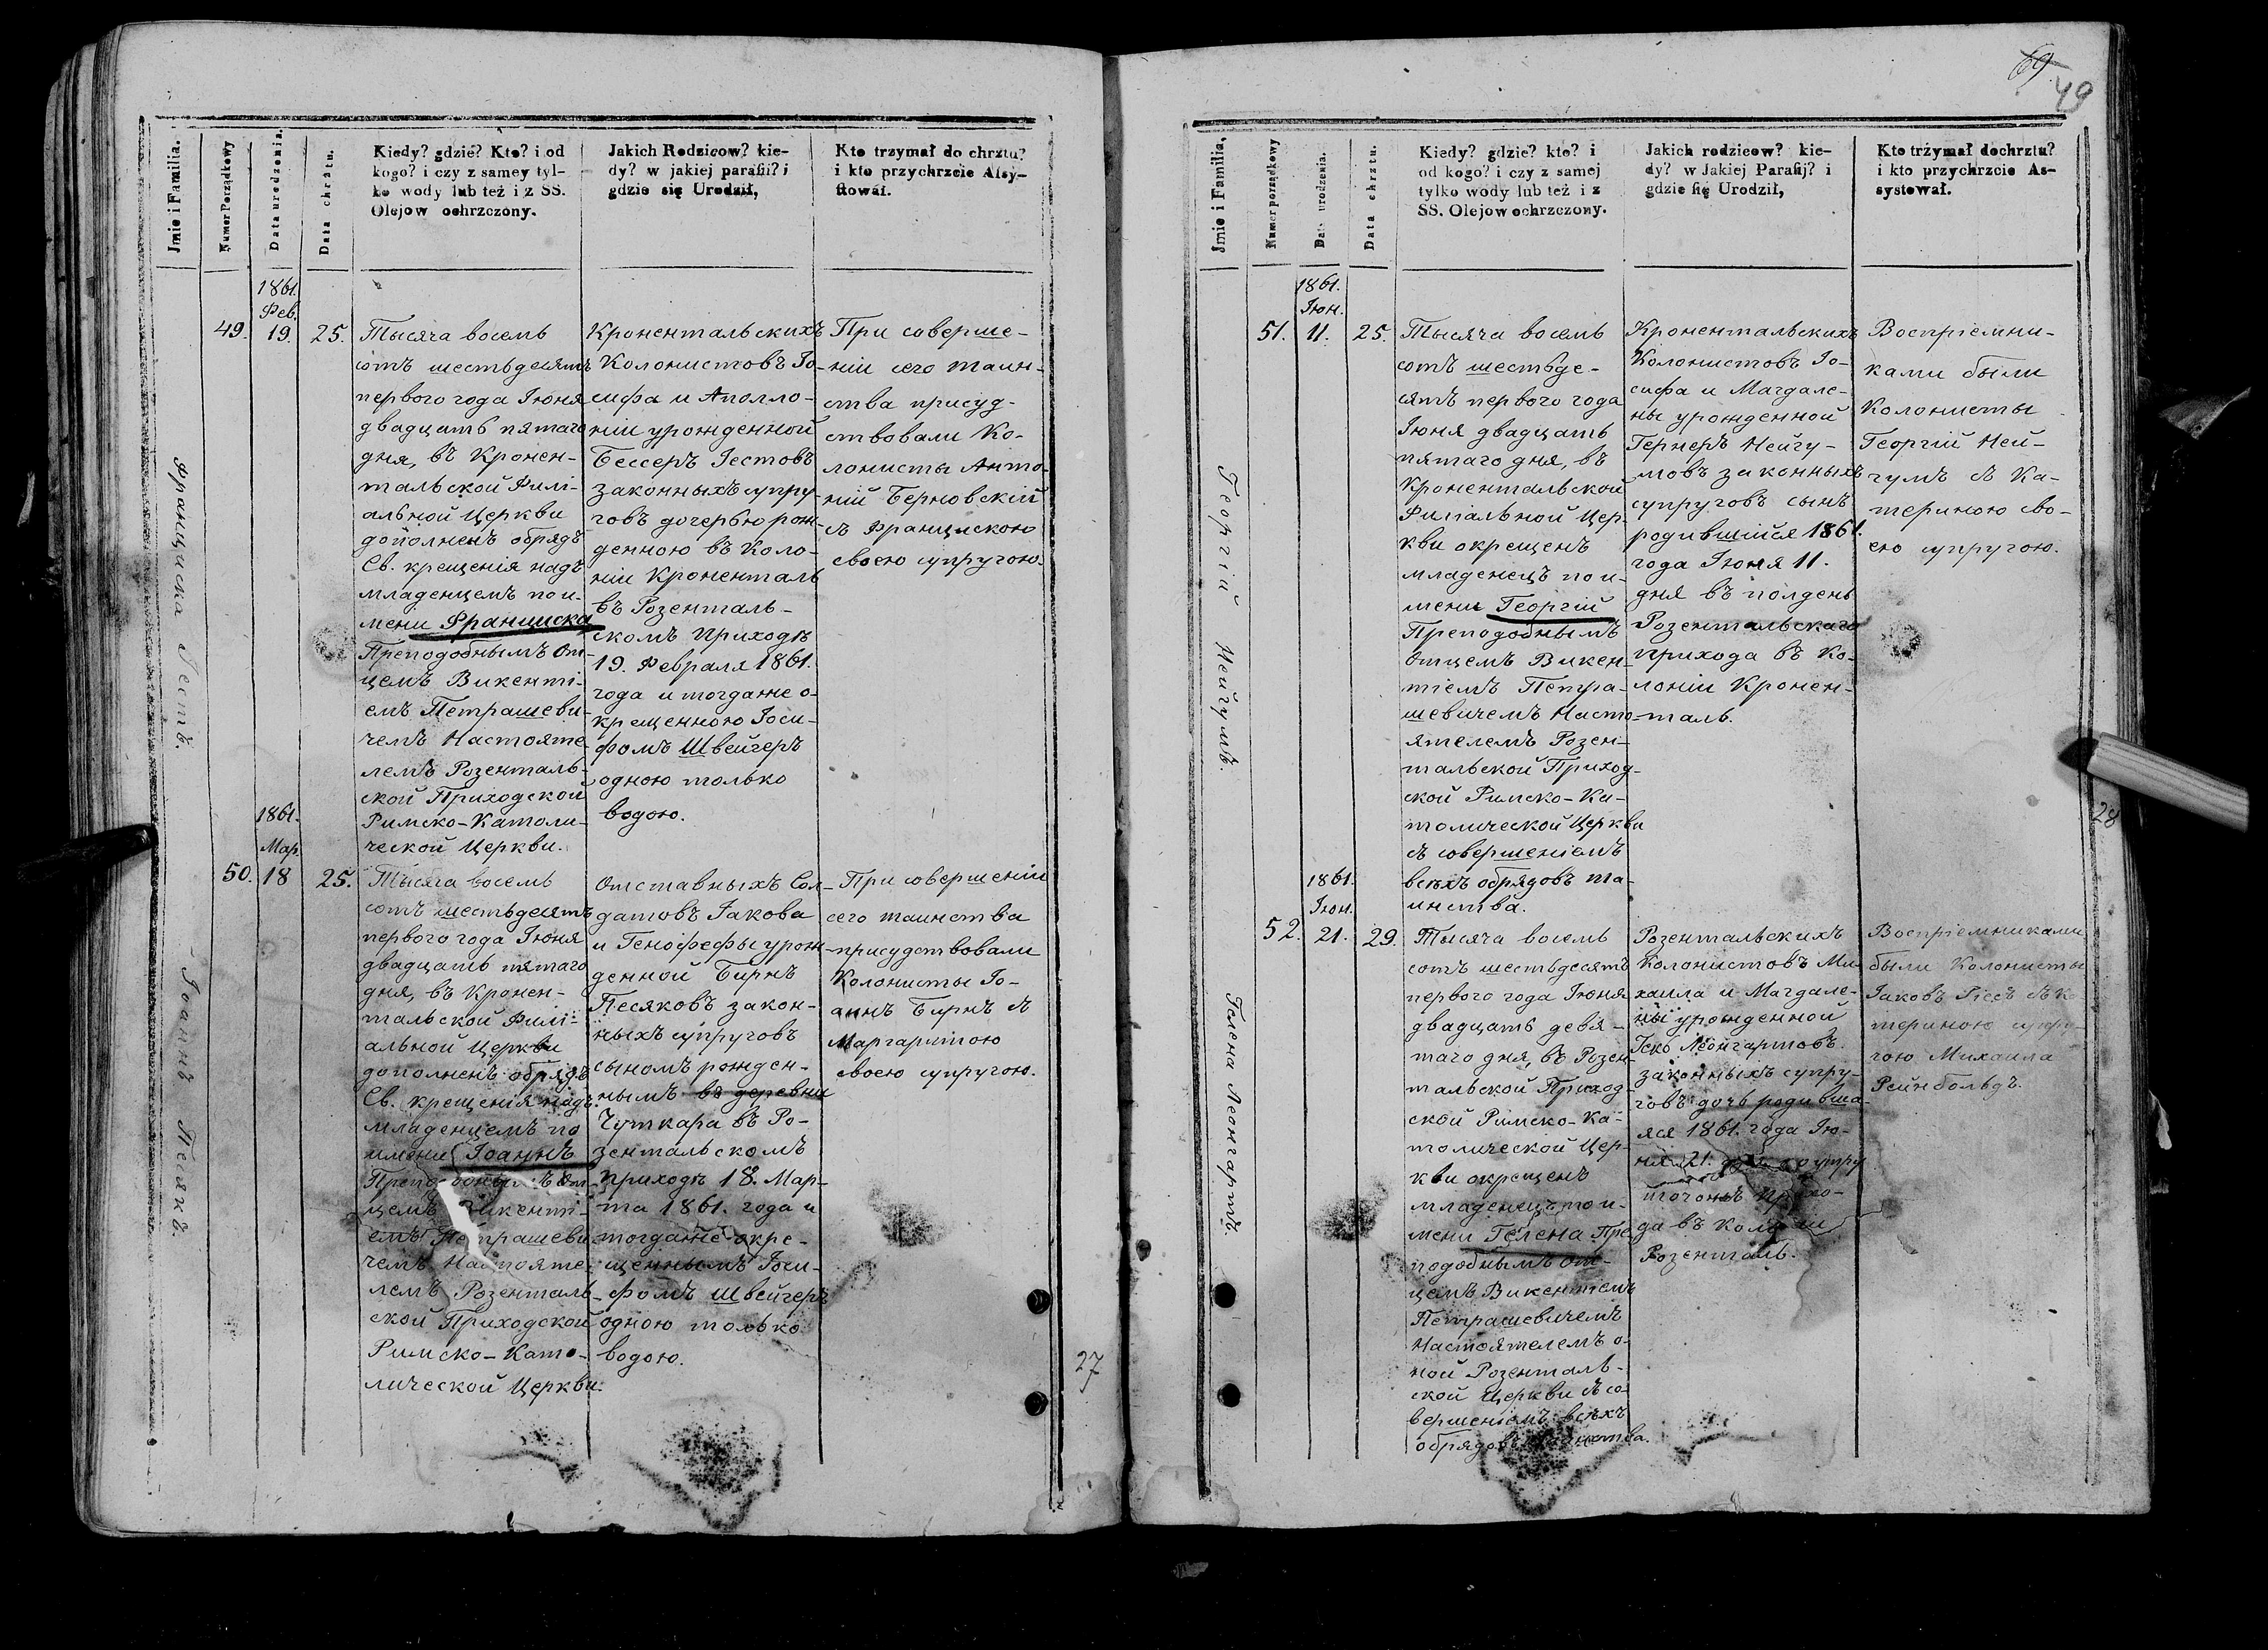 69
49
Jmie i Familia.
Numer Porządkowy
Data urodzenia.
Data chrztu.
Kiedy? gdzie? Kto? i od
kogo? i czy z samey tyl-
ko wody lub też i z SS.
Olejow ochrzczony.
Jakich Rodzicow? kie-
dy? w jakiej parafii? i
gdzie się Urodził,
Kto trzymał do chrztu?
i kto przychrzcie Assy-
stował.
Франциска Гестъ.
1861.
Фев.
49. 19. 25.
Тысяча восемь
сотъ шестьдесятъ
первого года Іюня
двадцать пятаго
дня, въ Кронен-
тальской Филі-
альной Церкви
дополненъ обрядъ
Св. крещенія надъ
младенцемъ по и-
мени Франциска
Преподобнымъ От-
цемъ Викенті-
емъ Петрашеви-
чемъ Настояте-
лемъ Розенталь-
ской Приходской
Римско-Католи-
ческой Церкви.
Кронентальскихъ
Колонистовъ Іо-
сифа и Аполло-
ніи урожденной
Бессеръ Гестовъ
законныхъ супру-
говъ дочерью рож-
денною въ Коло-
ніи Кроненталь
въ Розенталь-
скомъ Приходѣ
19. Февраля 1861.
года и тогдаже о-
крещенною Іоси-
фомъ Швейгеръ
одною только
водою.
При соверше-
ніи сего таин-
ства присуд-
ствовали Ко-
лонисты Анто-
ній Берновскій
съ Францискою
своею супругою.
Іоаннъ Песякъ.
1861.
Мар.
50. 18 25.
Тысяча восемь
сотъ шестьдесятъ
первого года Іюня
двадцать пятаго
дня, въ Кронен-
тальской Филі-
альной Церкви
дополненъ обрядъ
Св. крещенія надъ
младенцемъ по
имени Іоаннъ
Преподобнымъ От-
цемъ Викенті-
емъ Петрашеви-
чемъ Настояте-
лемъ Розенталь-
ской Приходской
Римско-Като-
лической Церкви.
Отставныхъ Сол-
датовъ Іакова
и Генофефы урож-
денной Бирнъ
Песяковъ закон-
ныхъ супруговъ
сыномъ рожден-
нымъ въ деревни
Чуткара въ Ро-
зентальскомъ
приходѣ 18. Мар-
та 1861. года и
тогдаже окре-
щеннымъ Іоси-
фомъ Швейгеръ
одною только
водою.
При совершеніи
сего таинства
присудствовали
Колонисты Іо-
аннъ Бирнъ съ
Маргаритою
своею супругою.
27
Jmie i Familia.
Numer porządkowy
Data urodzenia.
Data chrztu.
Kiedy? gdzie? kto? i
od kogo? i czy z samej
tylko wody lub też i z
SS. Olejow ochrzczony.
Jakich rodzicow? kie-
dy? w Jakiej Parafij? i
gdzie się Urodził,
Kto trzymał dochrztu?
i kto przychrzcie As-
systował.
Георгій Нейгумъ.
1861.
Іюн.
51. 11. 25.
Тысяча восемь
сотъ шестьде-
сятъ первого года
Іюня двадцать
пятаго дня, въ
Кронентальской
Филіальной Цер-
кви окрещенъ
младенецъ по и-
мени Георгій
Преподобнымъ
Отцемъ Викен-
тіемъ Петра-
шевичемъ Насто-
ятелемъ Розен-
тальской Приход-
ской Римско-Ка-
толической Церкви
съ совершеніемъ
всѣхъ обрядовъ та-
инства.
Кронентальскихъ
Колонистовъ Іо-
сифа и Магдале-
ны урожденной
Гернеръ Нейгу-
мовъ законныхъ
супруговъ сынъ
родившійся 1861.
года Іюня 11.
дня въ полдень
Розентальскаго
прихода въ Ко-
лоніи Кронен-
таль.
Воспріемни-
ками были
Колонисты
Георгій Ней-
гумъ съ Ка-
териною сво-
ею супругою.
28
Гелена Леонгартъ.
1861.
Іюн.
52. 21. 29.
Тысяча восемь
сотъ шестьдесятъ
первого года Іюня
двадцать девя-
таго дня, въ Розен-
тальской Приход-
ской Римско-Ка-
толической Цер-
кви окрещенъ
младенецъ по и-
мени Гелена Пре-
подобнымъ От-
цемъ Викентіемъ
Петрашевичемъ
Настоятелемъ о-
ной Розенталь-
ской Церкви съ со-
вершеніемъ всѣхъ
обрядовъ таинства.
Розентальскихъ
Колонистовъ Ми-
хаила и Магдале-
ны урожденной
Леонгартовъ
законныхъ супру-
говъ дочь родивша-
яся 1861. года Ію-
ня 21. дня по утру
прихо-
да въ Колоніи
Розенталь.
Воспріемниками
были Колонисты
Іаковъ Гіссъ съ Ка-
териною супру-
гою Михаила
Рейнбольдъ.